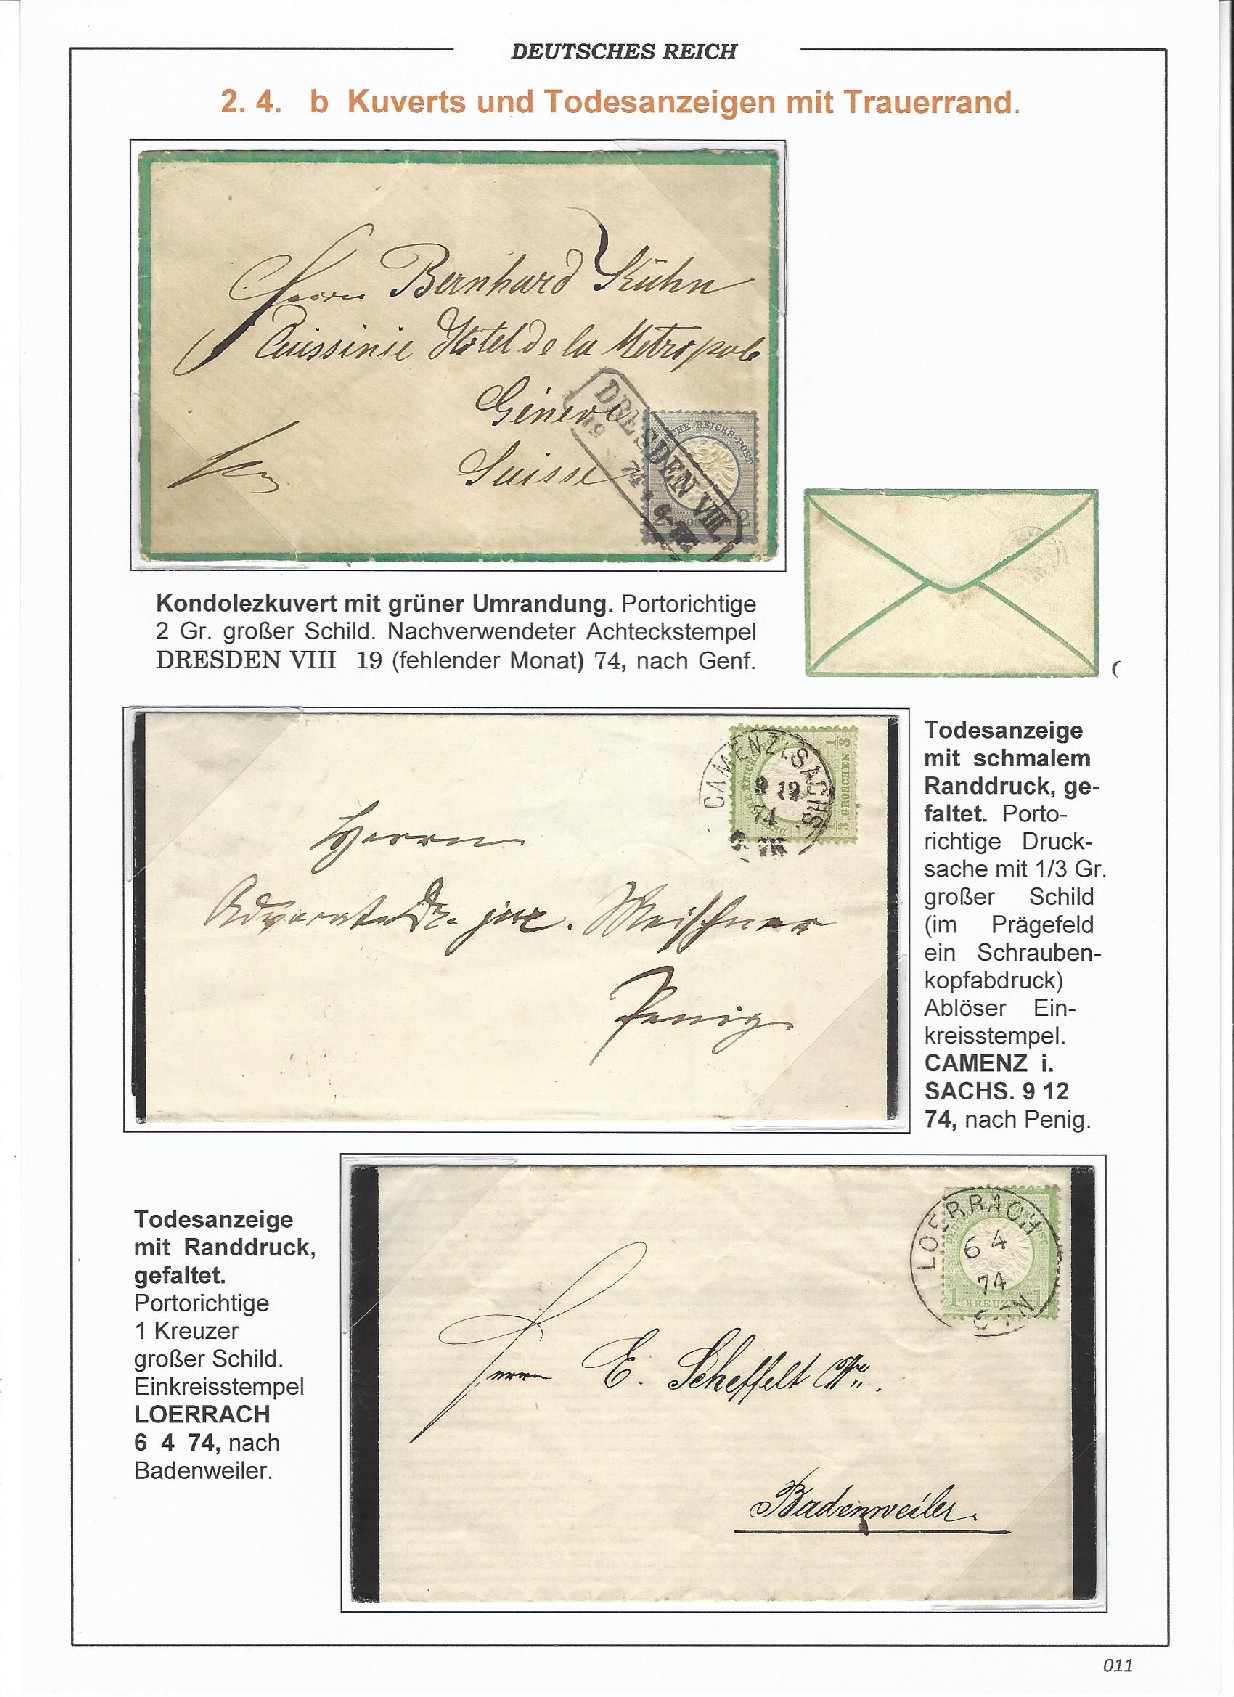 DEUTSCHES REICH
2. 4. b Kuverts und Todesanzeigen mit Trauerrand.
Herrn Bernhard Kühn
Cuissinie Hotel de la Metropole
Géneve
Suisse
DRESDEN VIII
19
74
Kondolezkuvert mit grüner Umrandung. Portorichtige
2 Gr. großer Schild. Nachverwendeter Achteckstempel
DRESDEN VIII 19 (fehlender Monat) 74, nach Genf.
CAMENZ i. SACHS.
9 12
74
Herrn
Advocat Dr. jur. Meischner
Penig
Todesanzeige
mit schmalem
Randdruck, ge-
faltet. Porto-
richtige Druck-
sache mit 1/3 Gr.
großer Schild
(im Prägefeld
ein Schrauben-
kopfabdruck)
Ablöser Ein-
kreisstempel.
CAMENZ i.
SACHS. 9 12
74, nach Penig.
Todesanzeige
mit Randdruck,
gefaltet.
Portorichtige
1 Kreuzer
großer Schild.
Einkreisstempel
LOERRACH
6 4 74, nach
Badenweiler.
LOERRACH
6 4
74
6-7N
Herrn E. Scheffelt
Badenweiler.
011